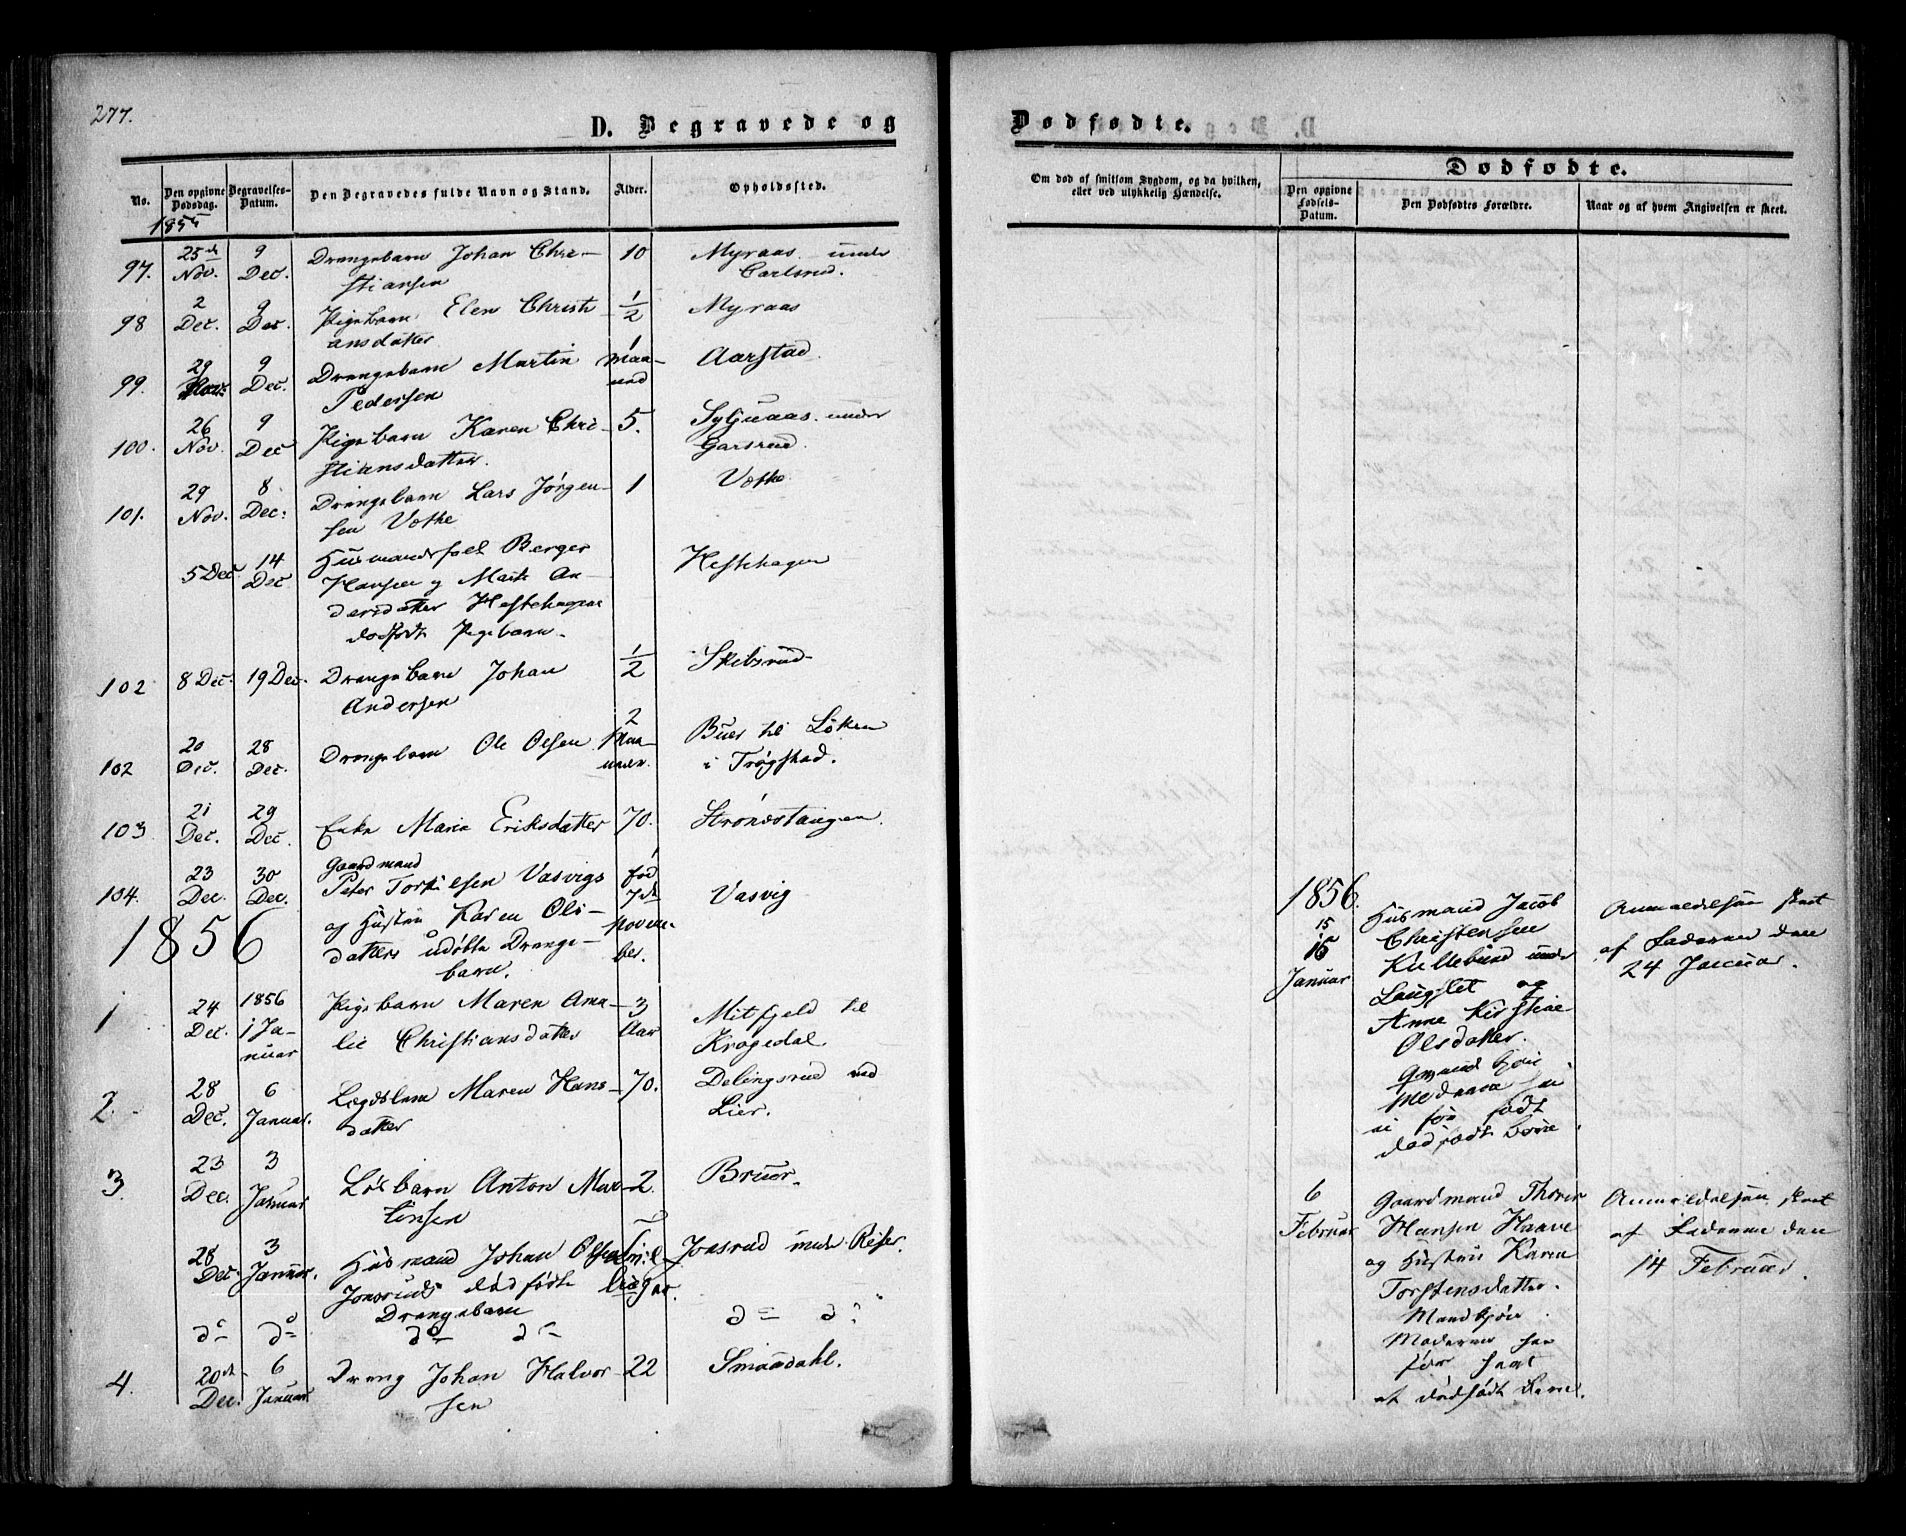 277.
D. Begravede og
No.
Den opgivne Dødsdag.
Begravelses-Datum.
Den Begravedes fulde Navn og Stand.
Alder.
Opholdssted.
1855
97. 25de Nov. 9 Dec. Drengebarn Johan Chri-
stiansen 10 Myraas under
Carlsrud.
98 2 Dec. 9 Dec. Pigebarn Elen Christi-
ansdatter 1/2 Myraas
99. 29 Nov. 9 Dec. Drengebarn Martin
Pedersen 1 Maa-
ned Aarstad.
100. 26 Nov. 9 Dec Pigebarn Karen Chri-
stiansdatter. 5. under
Garsrud.
101. 29 Nov. 8 Dec. Drengebarn Lars Jørgen-
sen Votke 1 Votke
5 Dec. 14 Dec Husmandsfolk Berger
Hansen og Marte An-
dersdatter Hestehagens
dødfødt Pigebarn. Hestehagen
102 8 Dec. 19 Dec. Drengebarn Johan
Andersen 1/2 Skibsrud
102 20 Dec. 28 Dec. Drengebarn Ole Olsen 2 Maa-
neder. Buer til Löken
i Trøgstad.
103 21 Dec. 29 Dec. Enke Maria Eriksdatter 70. Strøndstangen.
104. 23 Dec. 30 Dec. Gaardmand
Peter Torkilsen Vasvigs
og Hustru Karen Ols-
datters udøbte Drenge-
barn. fød
7de
Novem-
ber. Vasvig
1856
1 24 Dec. 1856 1 Ja-
nuar Pigebarn Maren Ama-
lie Christiansdatter 3 Aar Mitfjeld til
Krogedal.
2. 28 Dec. 6 Januar. Lægdslem Maren Hans-
datter 70. Delingsrud ved
Lier.
3. 23 Dec. 3 Januar Løsbarn Anton Mar-
tinsen 2. Bruer.
28 Dec. 3 Januar. Husmand Johan Olsen
Jonsruds dødfødte
Drengebarn Jonsrud under Riser.
do do do do do do
4. 20de Dec. 6 Januar Dreng Johan Halvor-
sen 22 Smaadahl.
Dødfødte.
Om død af smitsom Sygdom, og da hvilken,
eller ved ulykkelig Hændelse.
Dødfødte.
Den opgivne Fødsels-Datum.
Den Dødfødtes Forældre.
Naar og af hvem Angivelsen er skeet.
1856.
15
16
Januar
Husmand Jacob
Christensen
Kullebund under
Langslet og
Anne Kirstine
Olsdatter.
Qvindkjøn
Moderen har
ei før født
dødfødt Børn.
Anmeldelsen skeet
af Faderen den
24 Januar.
6
Februar
Gaardmand Thorer
Hansen Haave
og Hustru Karen
Torstensdatter.
Mandkjøn.
Moderen har
før havt
et dødfødt Barn.
Anmeldelsen skeet
af Faderen den
14 Februar.